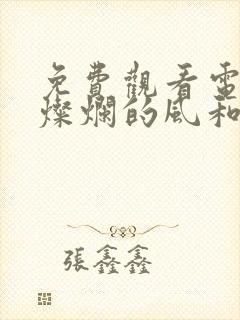 免費觀看電
燦爛的風和
張鑫鑫